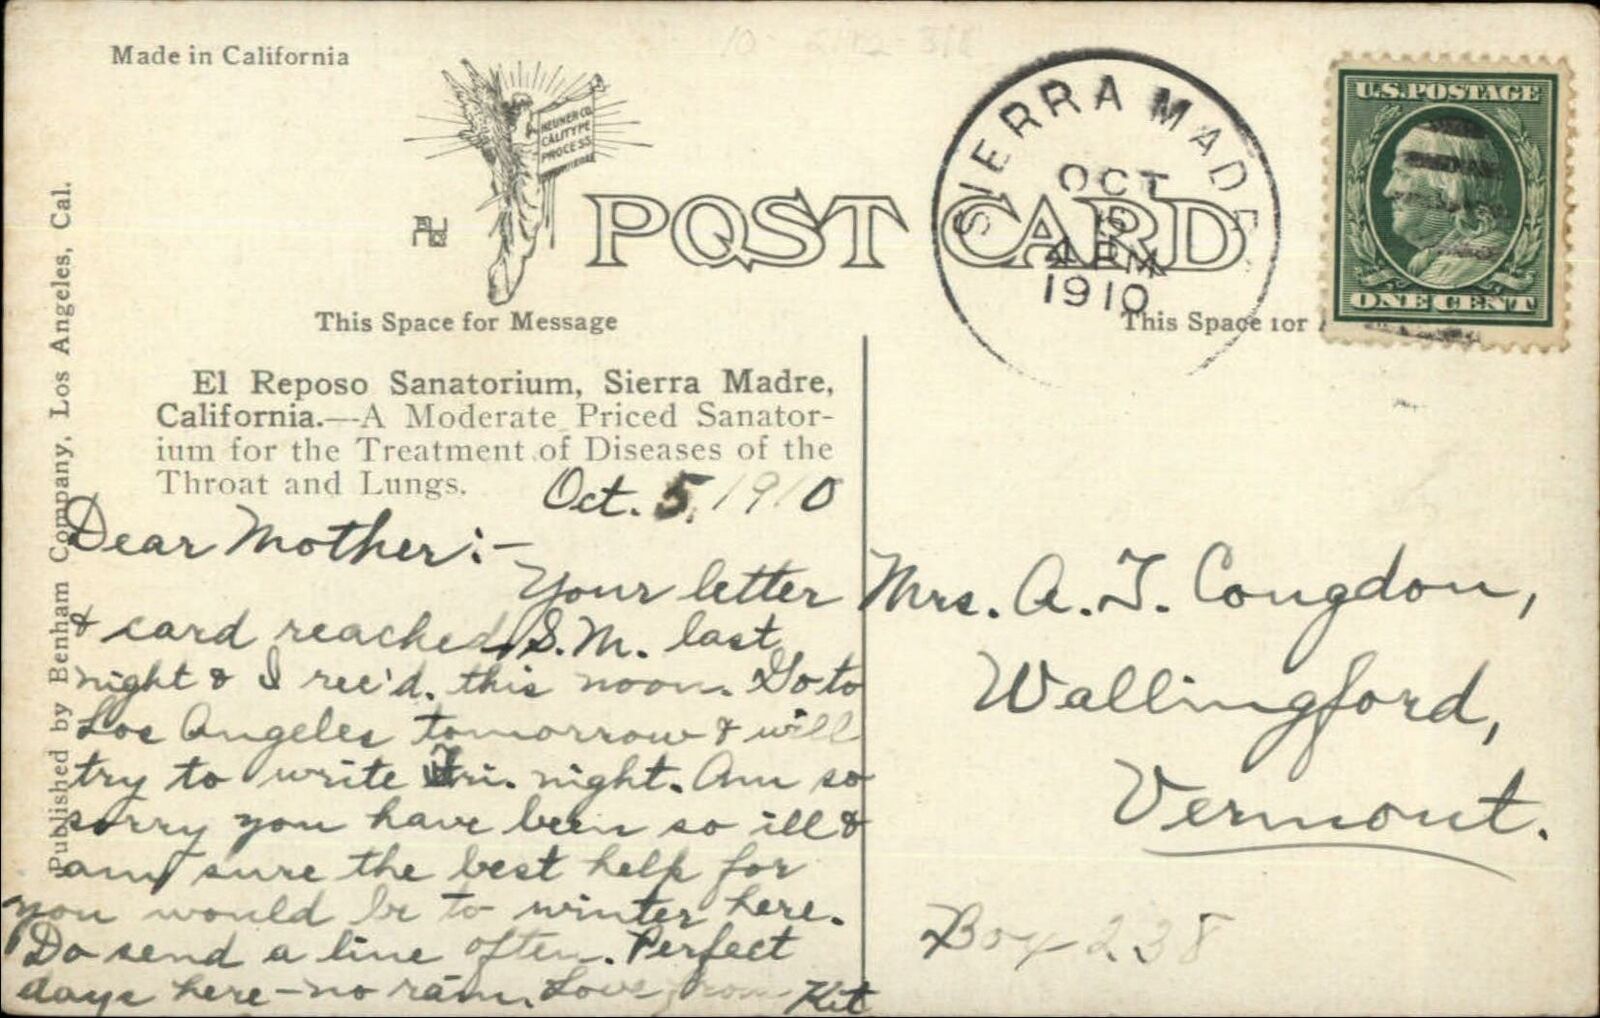 Made in California
NEUNER CO.
CALITYPE
PROCESS
POST CARD
SIERRA MADRE
OCT
5
4 PM
1910
U.S. POSTAGE
ONE CENT
This Space for Message
This Space for
Published by Benham Company, Los Angeles, Cal.
El Reposo Sanatorium, Sierra Madre,
California.—A Moderate Priced Sanator-
ium for the Treatment of Diseases of the
Throat and Lungs.
Oct. 5, 1910
Dear Mother:-
Your letter
& card reached S.M. last
night & I rec'd. this noon. Go to
Los Angeles tomorrow & will
try to write Fri. night. Am so
sorry you have been so ill &
am sure the best help for
you would be to winter here.
Do send a line often. Perfect
days here – no rain. Love from Kit
Mrs. A. T. Congdon,
Wallingford,
Vermont.
Box 238